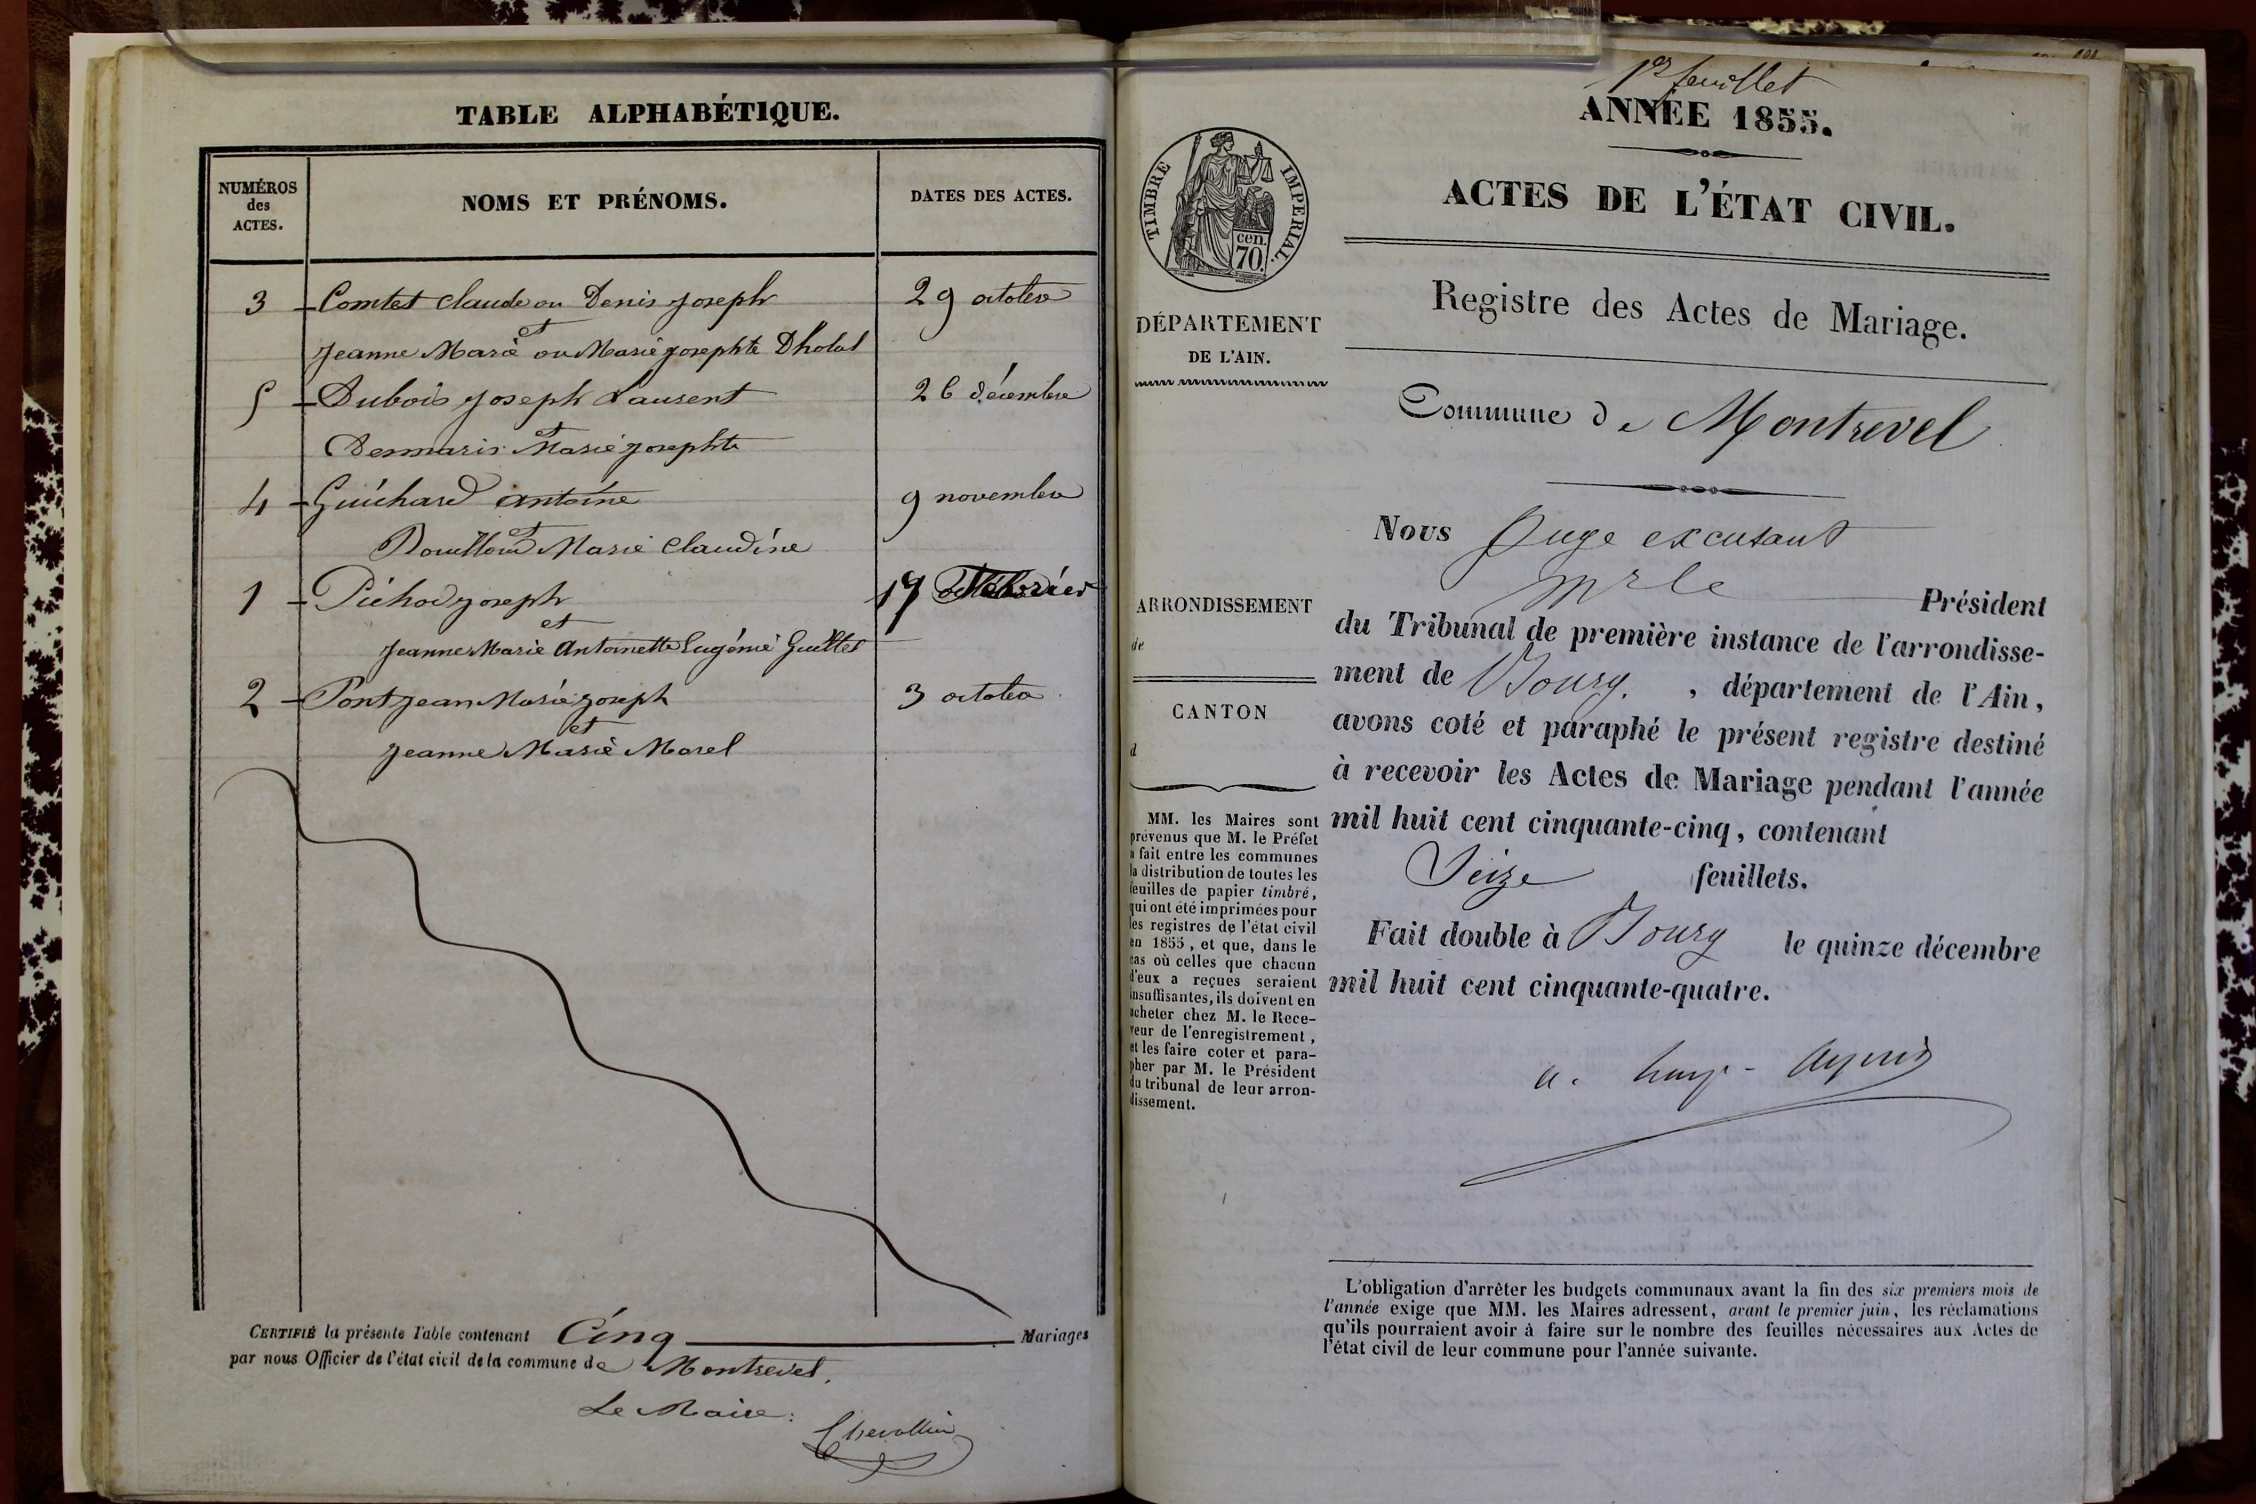 TABLE ALPHABÉTIQUE.
NUMÉROS
des
ACTES.
NOMS ET PRÉNOMS.
DATES DES ACTES.
3 Comtet Claude ou Denis Joseph 29 octobre
et
Jeanne Marie ou Marie Josephte
5 Dubois Joseph Laurent 26 décembre
et
Desmaris Marie Josephte
4 Guichard Antoine 9 novembre
et
Marie Claudine
1 Joseph 19
et
Jeanne Marie Antoinette Eugénie
2 Pont Jean Marie Joseph 3 octobre
et
Jeanne Marie Morel
CERTIFIÉ la présente Table contenant Cinq Mariages
par nous Officier de l'état civil de la commune de Montrevel.
Le Maire:
1er feuillet
ANNÉE 1855.
TIMBRE IMPERIAL.
cen.
70.
ACTES DE L'ÉTAT CIVIL.
Registre des Actes de Mariage.
DÉPARTEMENT
DE L'AIN.
Commune de Montrevel
Nous Juge excusant
Mr le Président
du Tribunal de première instance de l'arrondisse-
ment de Bourg, département de l'Ain,
avons coté et paraphé le présent registre destiné
à recevoir les Actes de Mariage pendant l'année
mil huit cent cinquante-cinq, contenant
Seize feuillets.
Fait double à Bourg le quinze décembre
mil huit cent cinquante-quatre.
ARRONDISSEMENT
de
CANTON
d
MM. les Maires sont
prévenus que M. le Préfet
a fait entre les communes
la distribution de toutes les
feuilles de papier timbré,
qui ont été imprimées pour
les registres de l'état civil
en 1855, et que, dans le
cas où celles que chacun
d'eux a reçues seraient
insuffisantes, ils doivent en
acheter chez M. le Rece-
veur de l'enregistrement,
et les faire coter et para-
pher par M. le Président
du tribunal de leur arron-
dissement.
L'obligation d'arrêter les budgets communaux avant la fin des six premiers mois de
l'année exige que MM. les Maires adressent, avant le premier juin, les réclamations
qu'ils pourraient avoir à faire sur le nombre des feuilles nécessaires aux Actes de
l'état civil de leur commune pour l'année suivante.